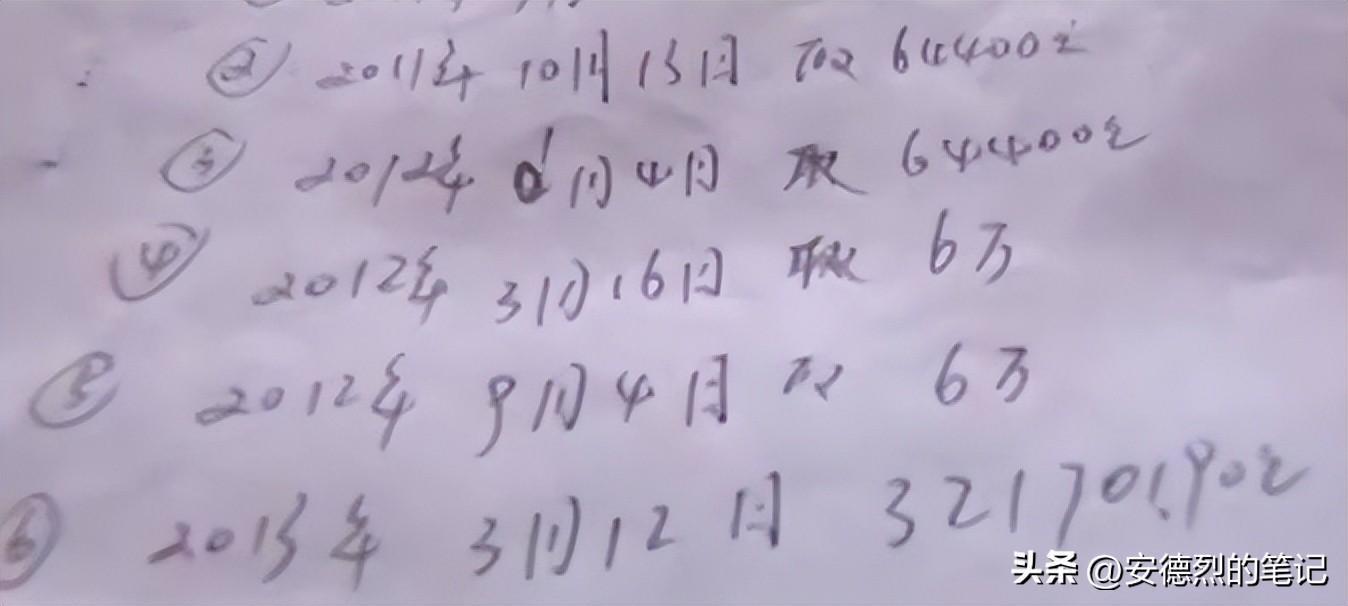 ② 2011年10月13日 取 64400元
③ 2012年 1月4日 取 64400元
④ 2012年 3月16日 取 6万
⑤ 2012年 9月4日 取 6万
⑥ 2013年 3月12日 321701.90元
头条 @安德烈的笔记